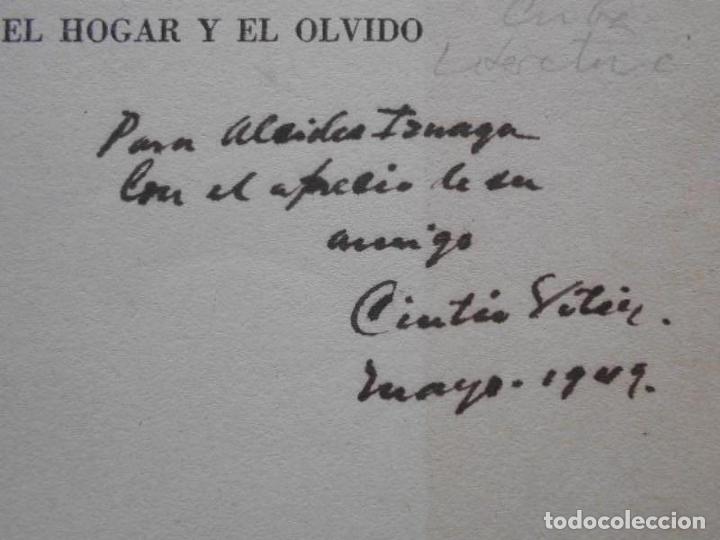 EL HOGAR Y EL OLVIDO
Cuba
Literatura
Para Alcides Iznaga
Con el aprecio de su
amigo
Cintio Vitier.
mayo. 1949.
todocoleccion